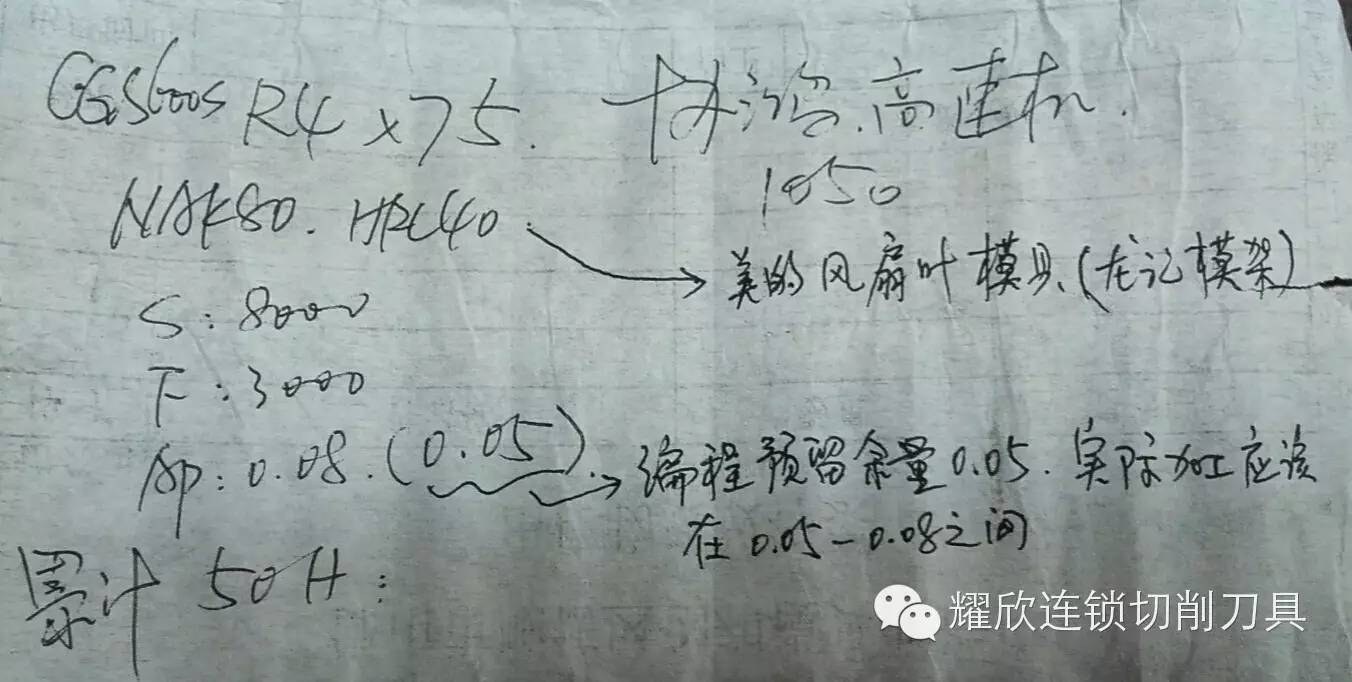 R4 x75. 协鸿.高速机.
1050
NAK80. HRC40
美的风扇叶模具(龙记模架)
S:8000
F:3000
AP:0.08.(0.05). 编程预留余量0.05.实际加工应该
在0.05-0.08之间
累计 50H:
耀欣连锁切削刀具